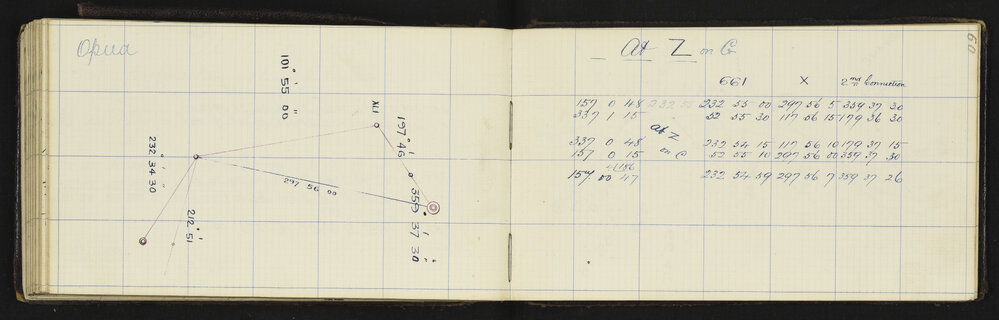 Opua
101° 55' 00"
XLI
197° 46'
232° 34' 30"
297 56 00
359° 37' 30"
212° 51'
60
At Z on G
661 X 2nd Connection
157 0 48 232 55 232 55 00 297 56 5 359 37 30
337 1 15 52 55 30 117 56 15 179 36 30
At Z
337 0 48 232 54 15 117 56 10 179 37 15
on G
157 0 15 52 55 10 297 56 00 359 37 30
157 00 47 232 54 59 297 56 7 359 37 26